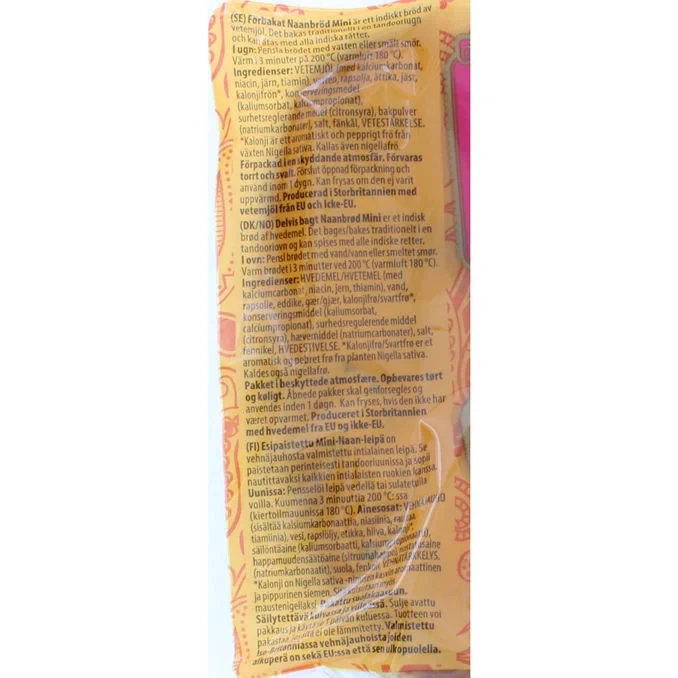 (SE) Förbakat Naanbröd Mini är ett indiskt bröd av
vetemjöl. Det bakas traditionellt i en tandooriugn
och kan ätas med alla indiska rätter.
I ugn: Pensla brödet med vatten eller smält smör.
Värm i 3 minuter på 200 °C (varmluft 180 °C).
Ingredienser: VETEMJÖL (med kalciumkarbonat,
niacin, järn, tiamin), vatten, rapsolja, ättika, jäst,
kalonjifrön*, konserveringsmedel
(kaliumsorbat, kalciumpropionat),
surhetsreglerande medel (citronsyra), bakpulver
(natriumkarbonater), salt, fänkål, VETESTÄRKELSE.
*Kalonji är ett aromatiskt och pepprigt frö från
växten Nigella sativa. Kallas även nigellafrö.
Förpackad i en skyddande atmosfär. Förvaras
torrt och svalt. Förslut öppnad förpackning och
använd inom 1 dygn. Kan frysas om den ej varit
uppvärmd. Producerad i Storbritannien med
vetemjöl från EU och icke-EU.
(DK/NO) Delvis bagt Naanbrød Mini er et indisk
brød af hvedemel. Det bages/bakes traditionelt i en
tandooriovn og kan spises med alle indiske retter.
I ovn: Pensl brødet med vand/vann eller smeltet smør.
Varm brødet i 3 minutter ved 200 °C (varmluft 180 °C).
Ingredienser: HVEDEMEL/HVETEMEL (med
kalciumcarbonat, niacin, jern, thiamin), vand,
rapsolie, eddike, gær/gjær, kalonjifrø/svartfrø*,
konserveringsmiddel (kaliumsorbat,
calciumpropionat), surhedsregulerende middel
(citronsyre), hævemiddel (natriumcarbonater), salt,
fennikel, HVEDESTIVELSE. *Kalonjifrø/Svartfrø er et
aromatisk og pebret frø fra planten Nigella sativa.
Kaldes også nigellafrø.
Pakket i beskyttede atmosfære. Opbevares tørt
og køligt. Åbnede pakker skal genforsegles og
anvendes inden 1 døgn. Kan fryses, hvis den ikke har
været opvarmet. Produceret i Storbritannien
med hvedemel fra EU og ikke-EU.
(FI) Esipaistettu Mini-Naan-leipä on
vehnäjauhosta valmistettu intialainen leipä. Se
paistetaan perinteisesti tandooriuunissa ja sopii
nautittavaksi kaikkien intialaisten ruokien kanssa.
Uunissa: Pensselöi leipä vedellä tai sulatetulla
voilla. Kuumenna 3 minuuttia 200 °C: ssa
(kiertoilmauunissa 180 °C). Ainesosat: VEHNÄJAUHO
(sisältää kalsiumkarbonaattia, niasiinia, rautaa,
tiamiinia), vesi, rapsiöljy, etikka, hiiva, kalonji*,
säilöntäaine (kaliumsorbaatti, kalsiumpropionaatti),
happamuudensäätöaine (sitruunahappo), nostatusaine
(natriumkarbonaatit), suola, fenkoli, VEHNÄTÄRKKELYS.
*Kalonji on Nigella sativa -nimisen kasvin aromaattinen
ja pippurinen siemen.
maustenigellaksi. Pakattu suojakaasuun.
Säilytettävä kuivassa ja viileässä. Sulje avattu
pakkaus ja käytä se 1 päivän kuluessa. Tuotteen voi
pakastaa, jos sitä ei ole lämmitetty. Valmistettu
Iso-Britanniassa vehnäjauhoista joiden
alkuperä on sekä EU:ssa että sen ulkopuolella.